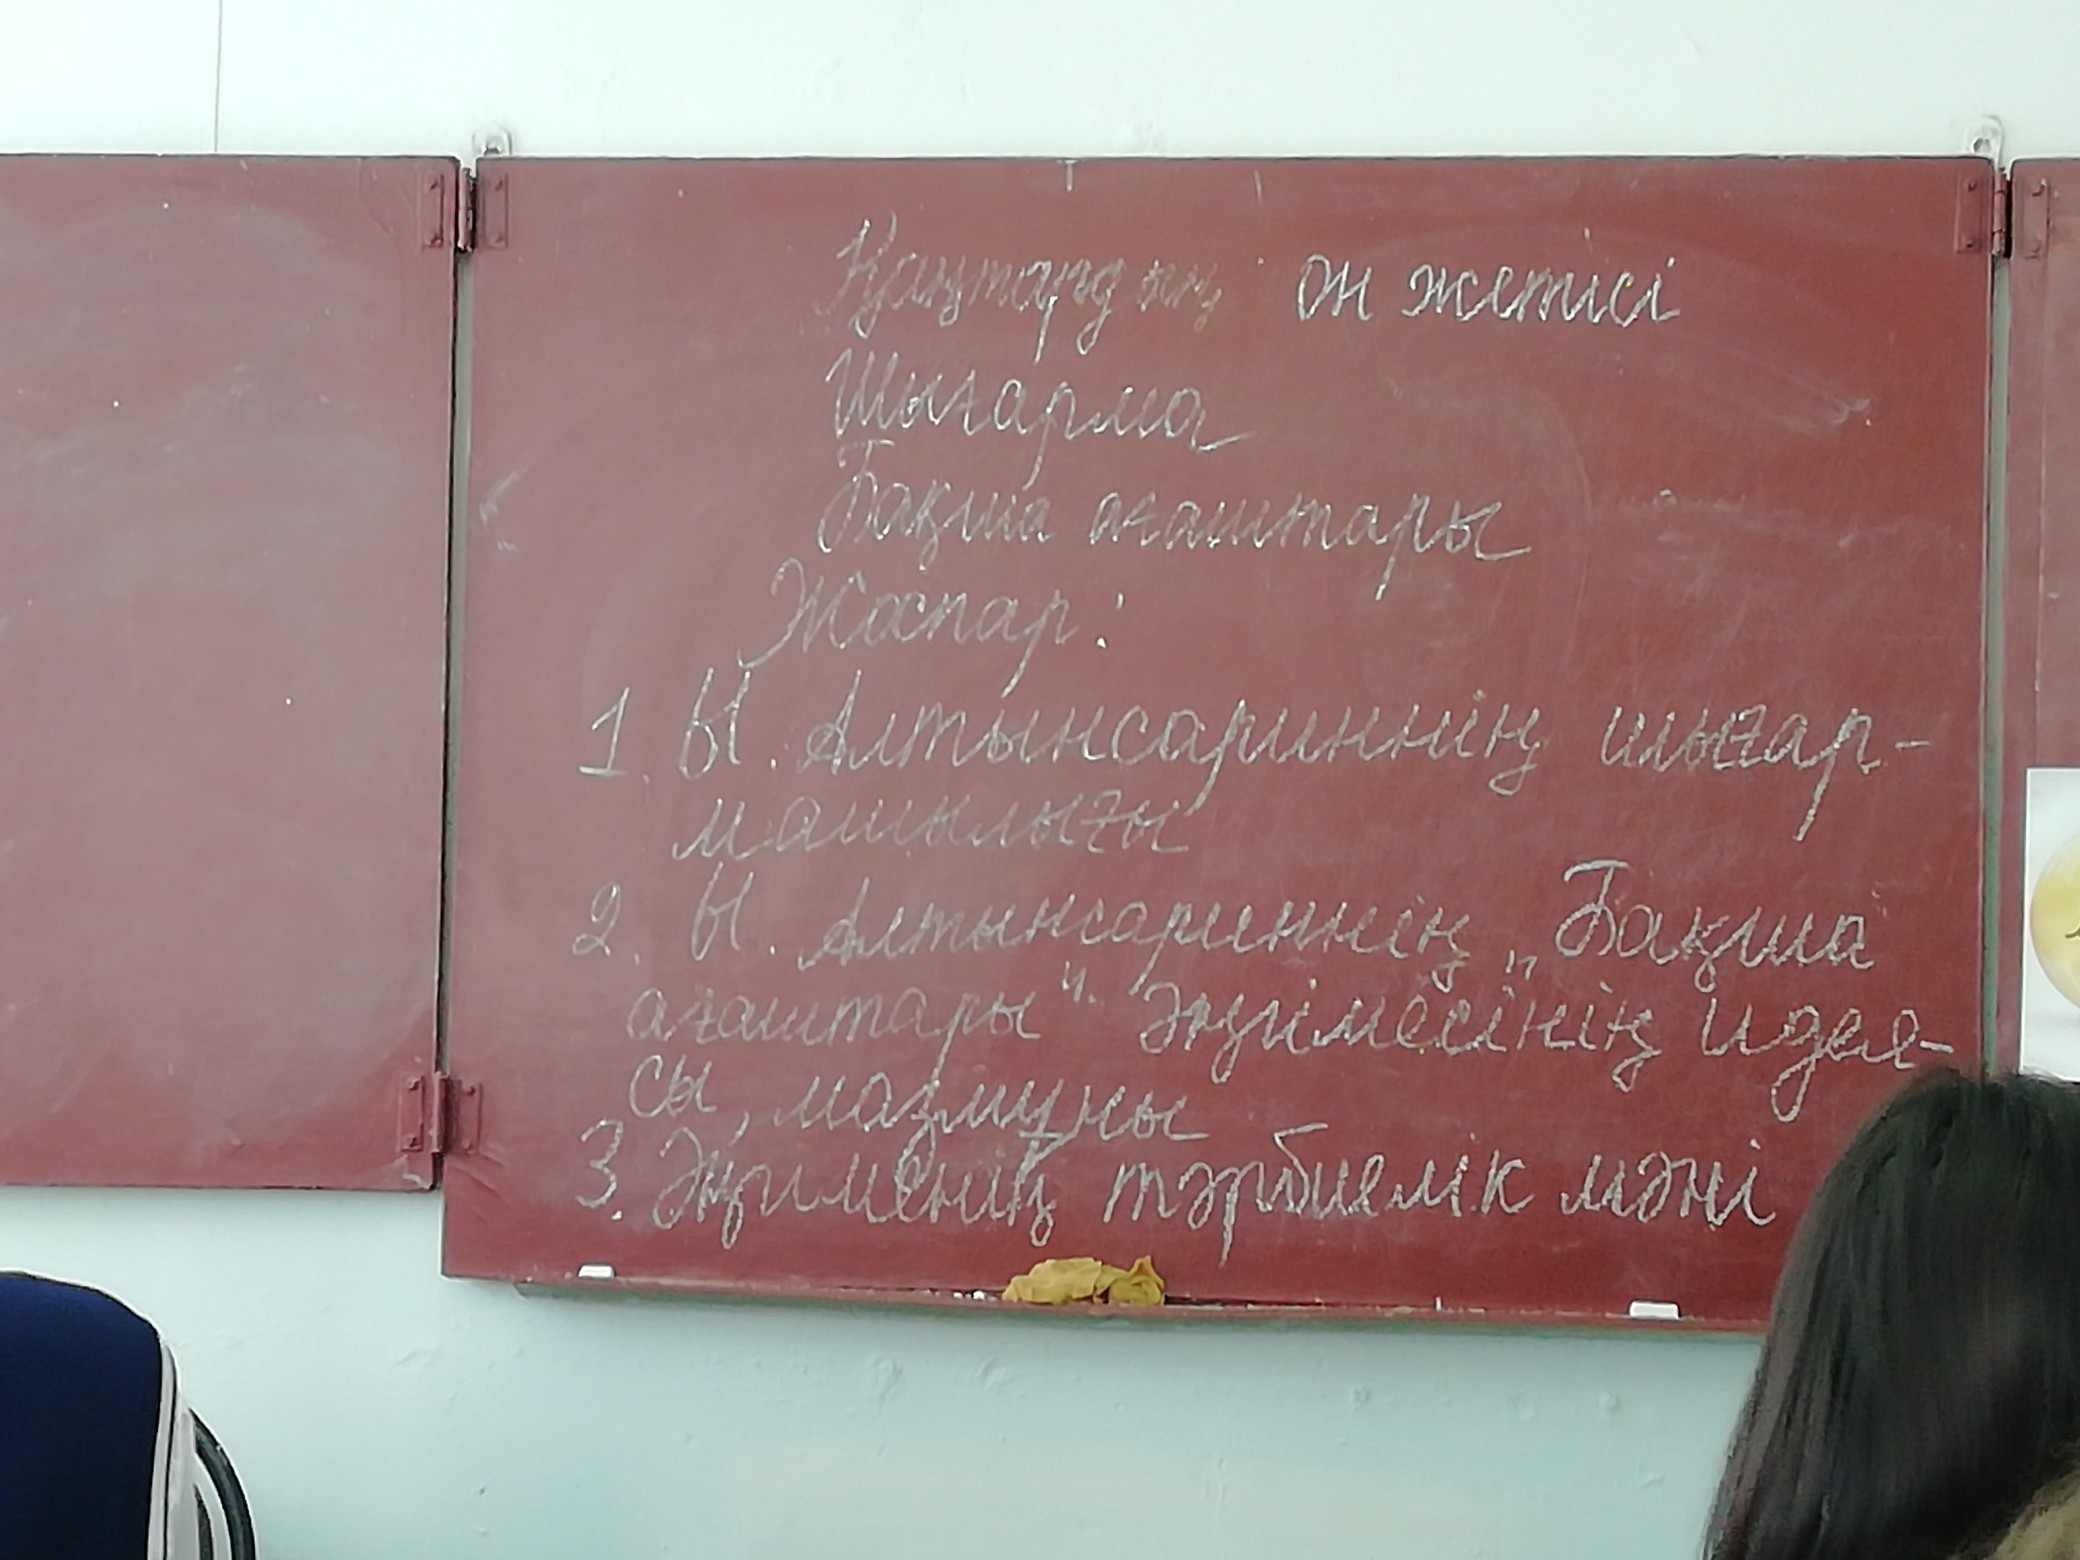 Қаңтардың он жетісі
Шығарма
Бақша ағаштары
Жоспар:
1. Ы. Алтынсариннің шығар-
машылығы
2. Ы. Алтынсариннің „Бақша
ағаштары" әңгімесінің идея-
сы, мазмұны
3. Әңгіменің тәрбиелік мәні